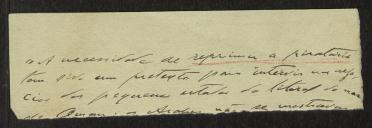 "A necessidade de reprimir a pirataria
tem sido um pretexto para intervir nos nego
cios dos pequenos estados do litoral do mar
de Oman: os Arabes não se mostravam